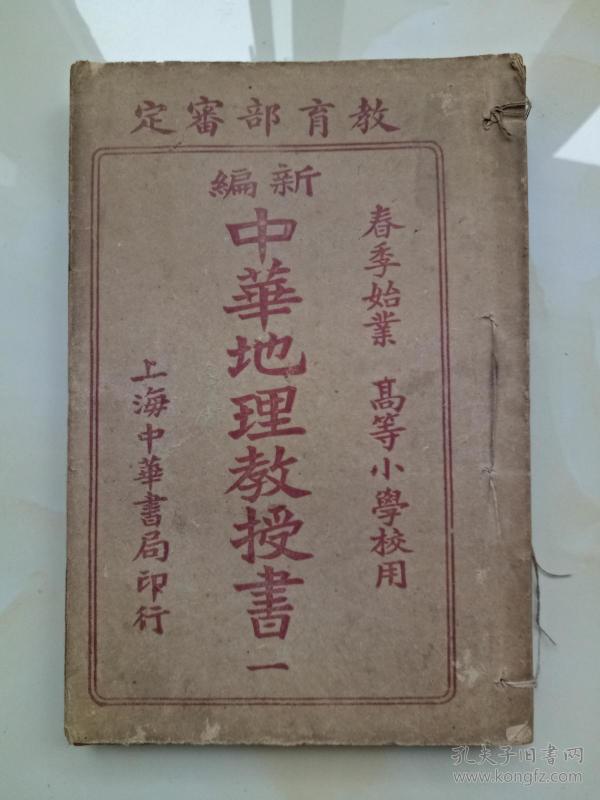 教育部審定
春季始業 高等小學校用
新編
中華地理教授書 一
上海中華書局印行
孔夫子旧书网
www.kongfz.com